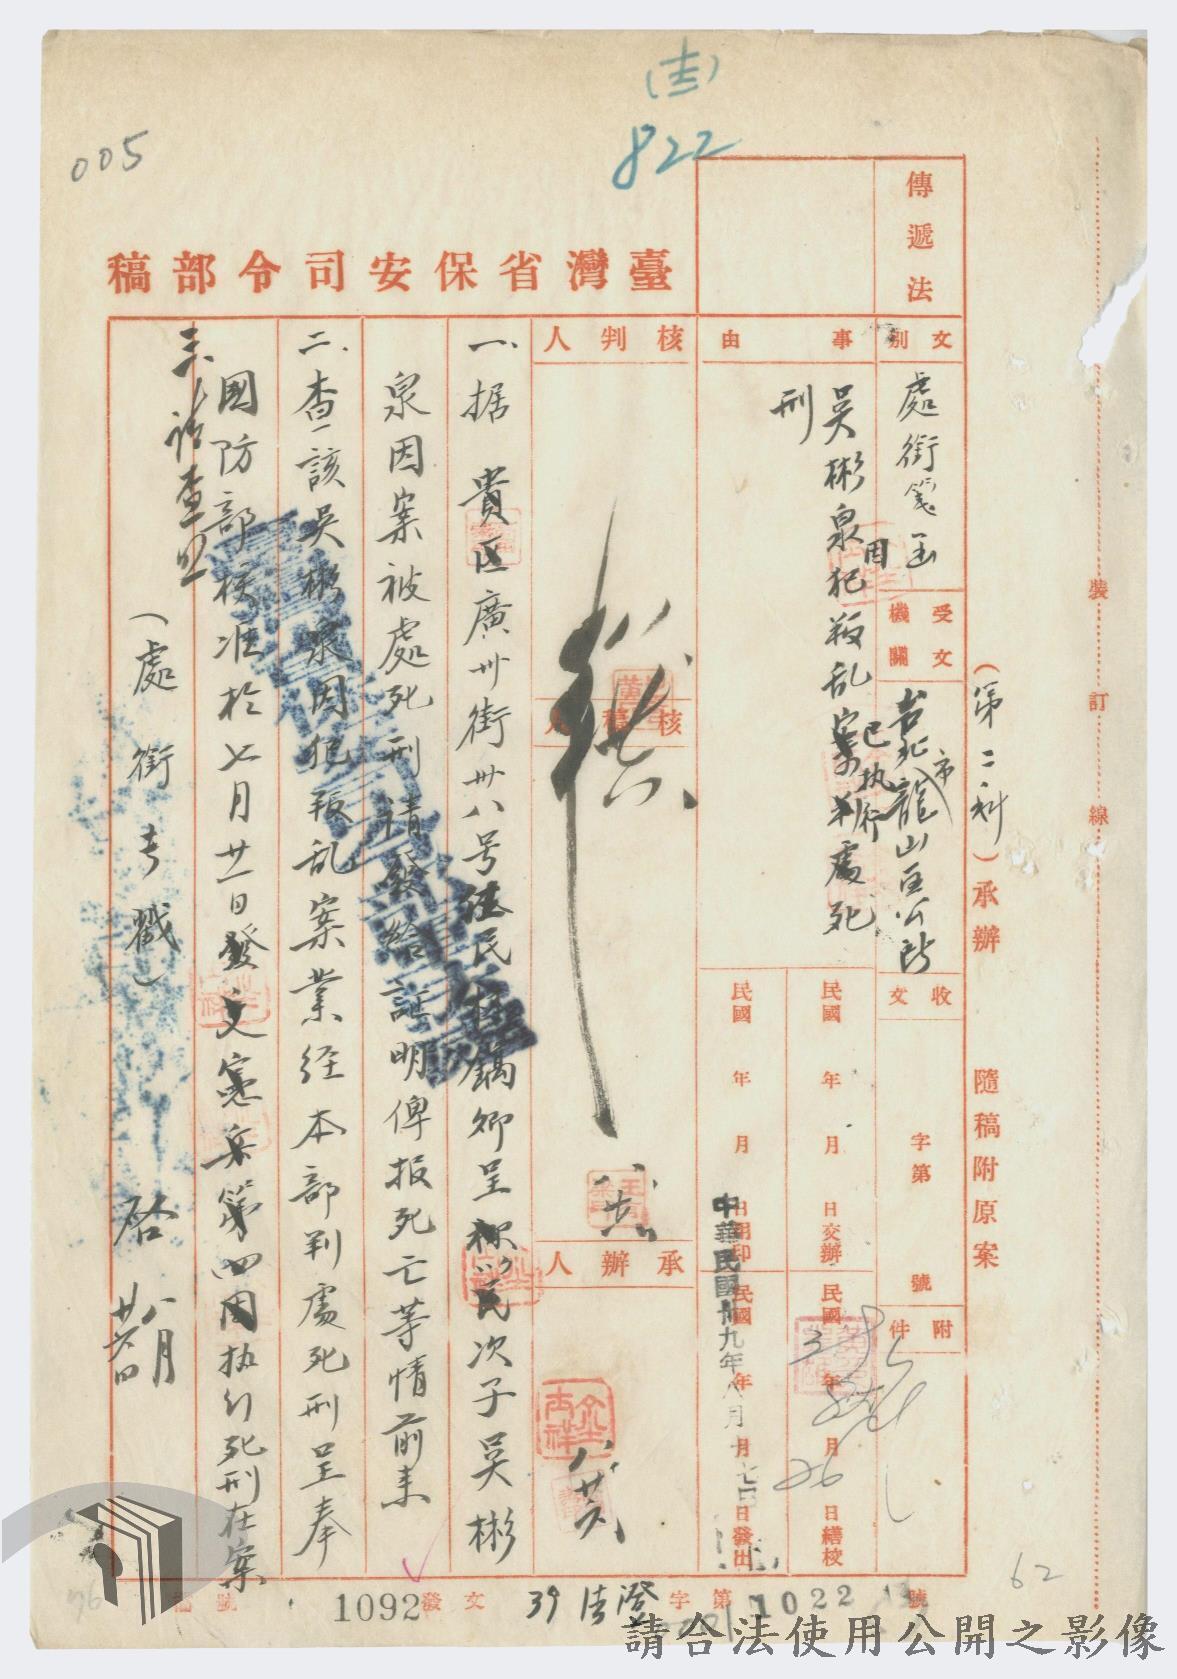 005
(吉)
822
傳遞法
臺灣省保安司令部稿
文別
處銜箋函
受文機關
台北市龍山區公所
收文
字第
號
附件
事由
吳彬泉因犯叛乱案已执行處死刑
(第二科)承辦
隨稿附原案
裝訂線
民國 年 月 日交辦
民國 年 月 日繕校
39
26
民國 年 月 日用印
民國 年 月 日發出
中華民國卅九年八月 七日
核判人
核稿人
承辦人
一、据 貴区廣州街卅八号住民 鏑卿呈称以民次子吳彬
泉因案被處死刑請發給証明俾报死亡等情前来
二、查該吳彬泉因犯叛乱案業经本部判處死刑呈奉
國防部核准於七月廿一日發交憲兵第四团执行死刑在案
三、請查照
(處銜章戳)啓
八月廿六日
檔號
1092
發文
39清澄字第1022號
62
76
請合法使用公開之影像